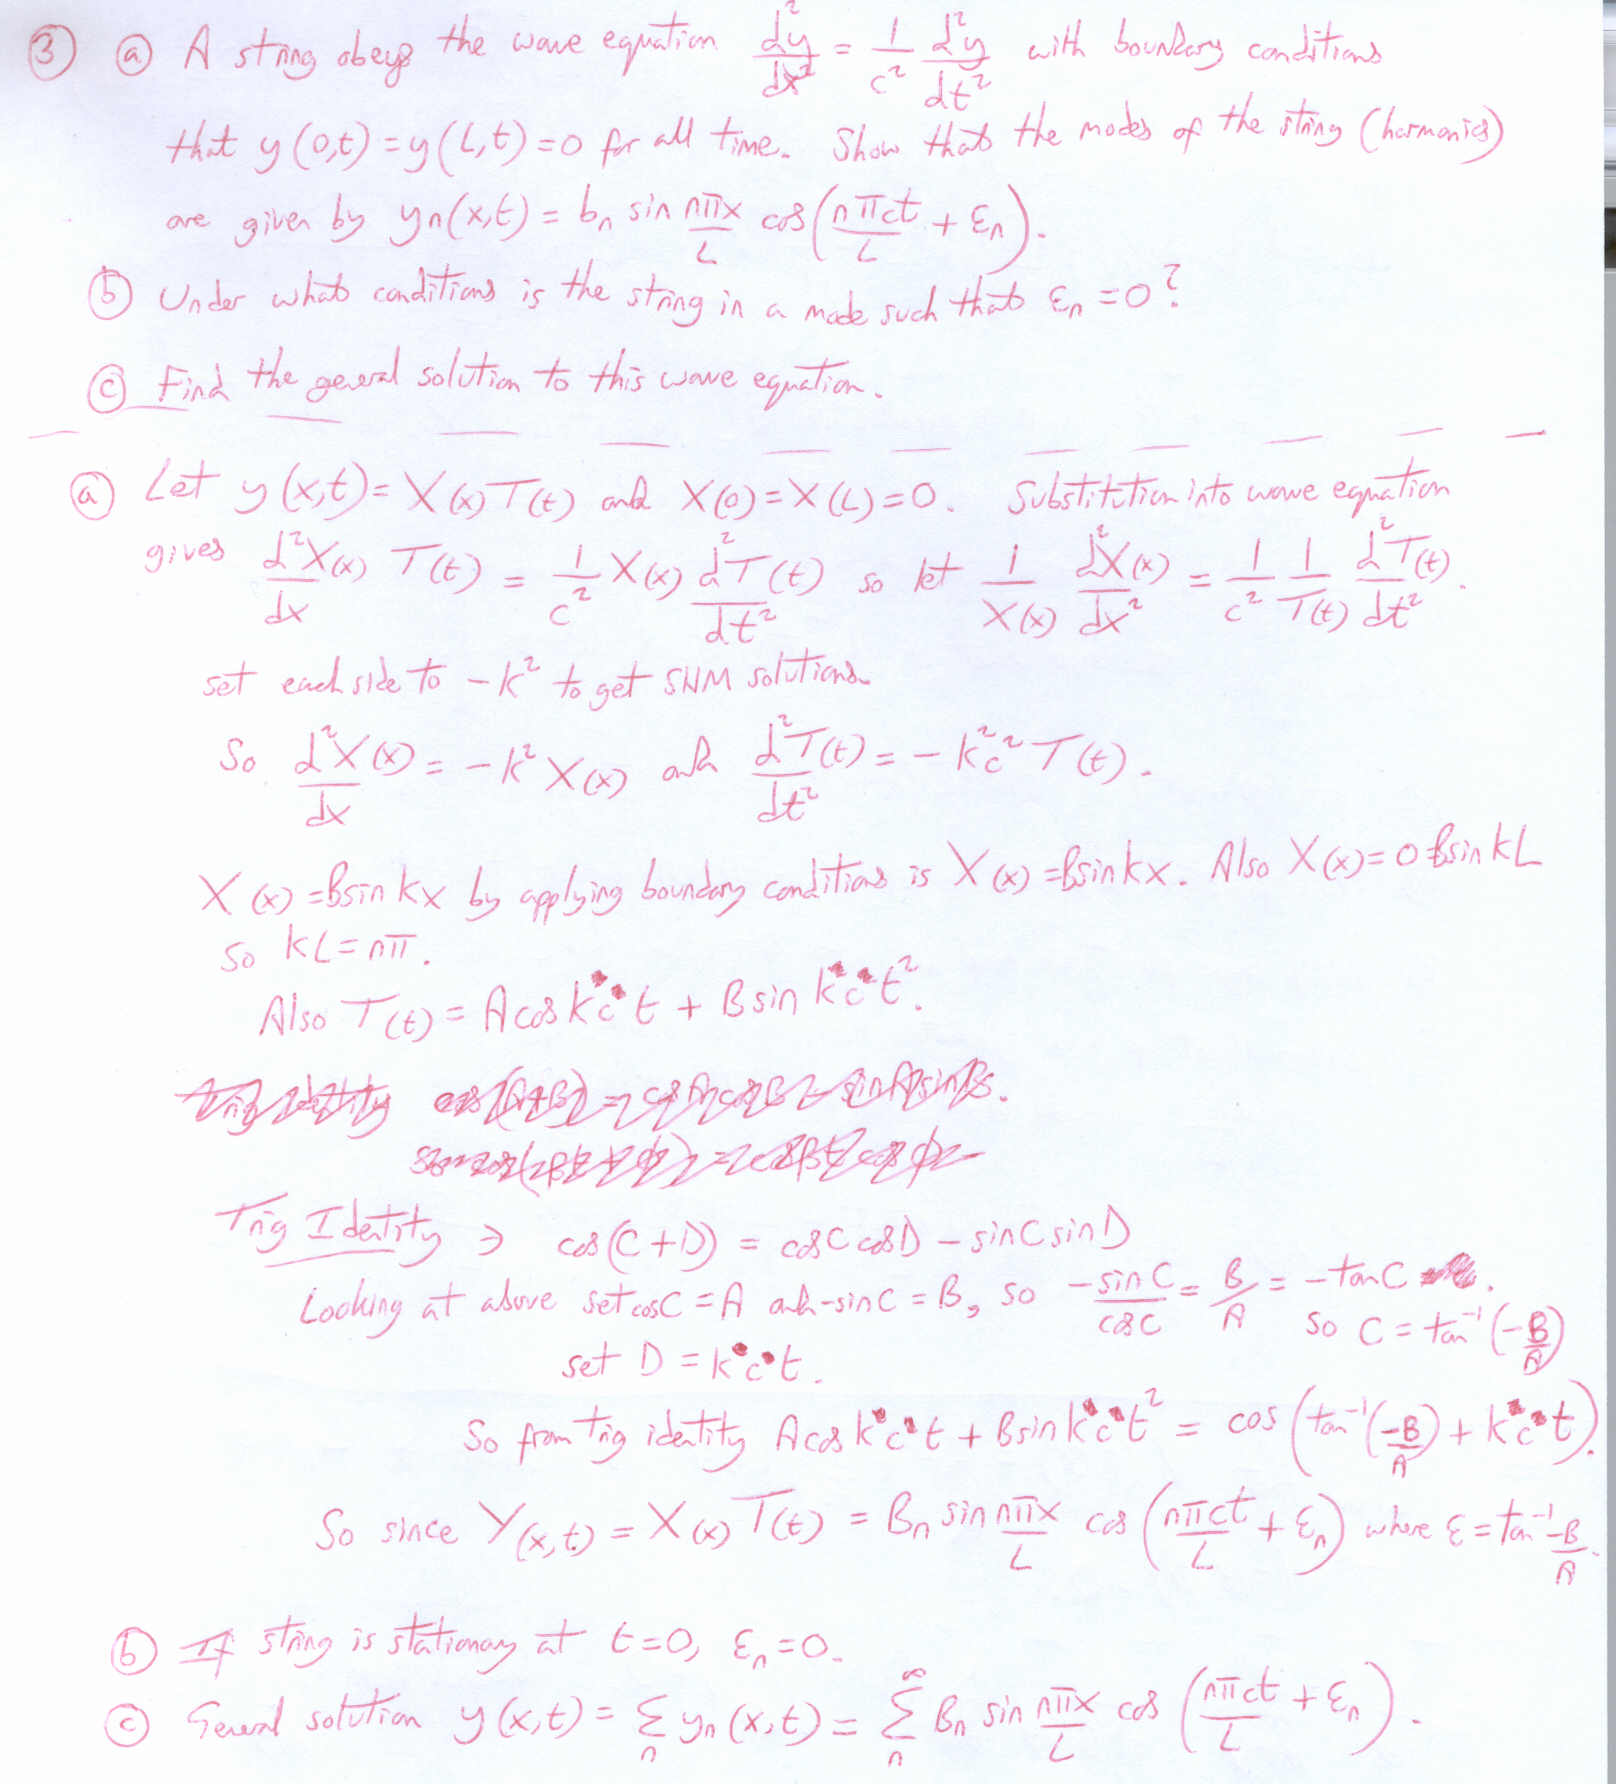 ③ ⓐ A string obeys the wave equation d²y/dx² = 1/c² d²y/dt² with boundary conditions
that y(0,t) = y(L,t) = 0 for all time. Show that the modes of the string (harmonics)
are given by yn(x,t) = bn sin nπx/L cos(nπct/L + εn).
ⓑ Under what conditions is the string in a mode such that εn = 0?
ⓒ Find the general solution to this wave equation.
ⓐ Let y(x,t) = X(x)T(t) and X(0) = X(L) = 0. Substitution into wave equation
gives d²X(x)/dx T(t) = 1/c² X(x) d²T(t)/dt² so let 1/X(x) d²X(x)/dx² = 1/c² 1/T(t) d²T(t)/dt².
set each side to -k² to get SHM solutions.
So d²X(x)/dx = -k² X(x) and d²T(t)/dt² = -k²c² T(t).
X(x) = Bsin kx by applying boundary conditions is X(x) = Bsin kx. Also X(x) = 0 Bsin kL
so kL = nπ.
Also T(t) = A cos kct + B sin kct².
Trig Identity → cos(C+D) = cosC cosD - sinC sinD
Looking at above set cosC = A and -sinC = B, so -sinC/cosC = B/A = -tanC.
so C = tan⁻¹(-B/A)
set D = kct.
So from trig identity A cos kct + B sin kct² = cos(tan⁻¹(-B/A) + kct).
So since Y(x,t) = X(x)T(t) = Bn sin nπx/L cos(nπct/L + εn) where ε = tan⁻¹ -B/A.
ⓑ If string is stationary at t=0, εn = 0.
ⓒ General solution y(x,t) = Σn yn(x,t) = Σn^∞ Bn sin nπx/L cos(nπct/L + εn).